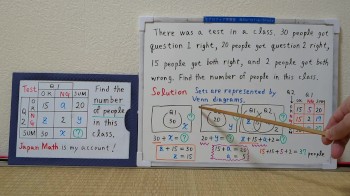 There was a test in a class. 30 people got
question 1 right, 20 people got question 2 right,
15 people got both right, and 2 people got both
wrong. Find the number of people in this class.
Solution Sets are represented by
Venn diagrams.
Test
Q1
OK NG SUM
Q2
OK 15 a 20
NG z 2 y
SUM 30 x ?
Find the
number
of people
in this
class.
Japan Math is my account!
Q1
30
30 + x = ?
z + 15 = 30
z = 15
20 + y = ?
15 + a = 20
a = 5
15 + 15 + 5 + 2 = 37 people